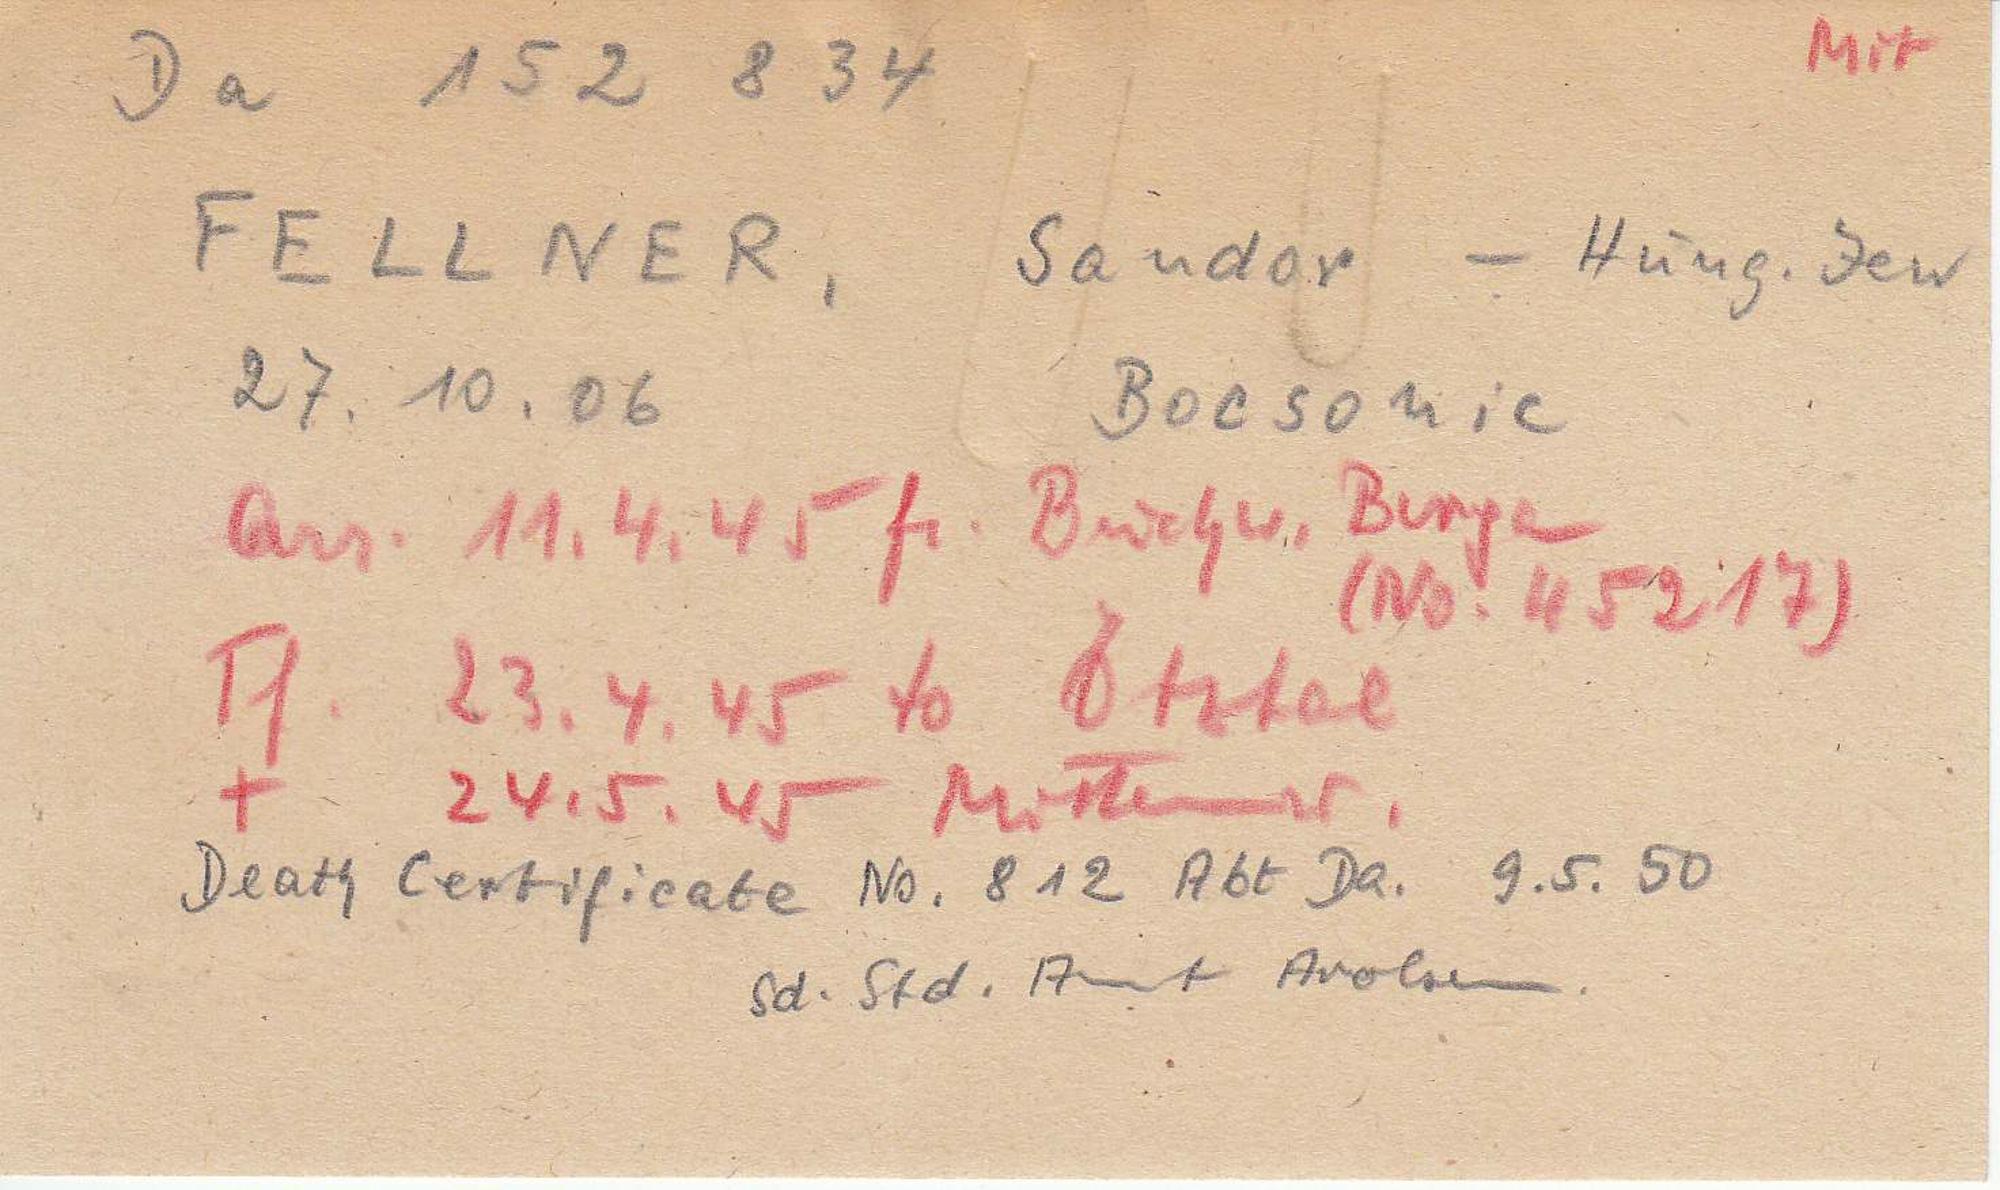 Da 152 834 Mit
FELLNER, Sandor – Hung. Jew
27. 10. 06 Bocsonic
arr. 11.4.45 fr. Buchw. Burga
(No. 45217)
Tf. 23.4.45 to Ötztal
+ 24.5.45 Mittenw.
Death Certificate No. 812 Abt Da. 9.5.50
Sd. Std. Amt Arolsen.